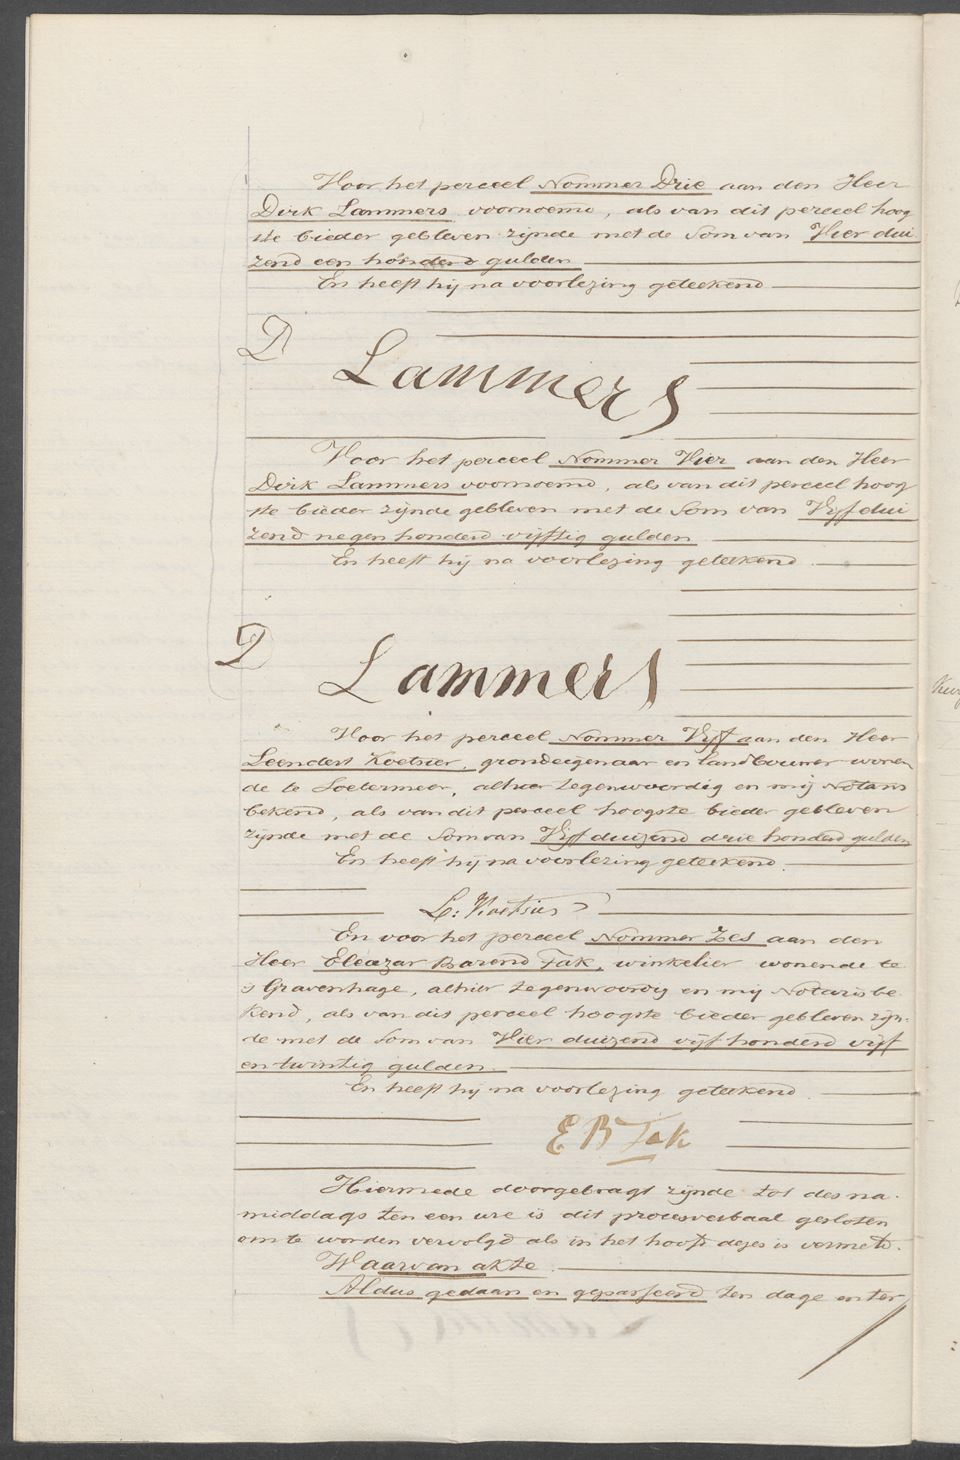 Voor het perceel Nommer Drie aan den Heer
Dirk Lammers voornoemd, als van dit perceel hoog
ste bieder gebleven zijnde met de Som van Vier dui
zend een honderd gulden
En heeft hij na voorlezing geteekend
D Lammers
Voor het perceel Nommer Vier aan den Heer
Dirk Lammers voornoemd, als van dit perceel hoog
ste bieder zijnde gebleven met de Som van Vijf dui
zend negen honderd vijftig gulden
En heeft hij na voorlezing geteekend
D Lammers
Voor het perceel Nommer Vijf aan den Heer
Leendert Koetsier, grondeigenaar en landbouwer wonen
de te Soetermeer, alhier tegenwoordig en mij Notaris
bekend, als van dit perceel hoogste bieder gebleven
zijnde met de Som van Vijf duizend drie honderd gulden
En heeft hij na voorlezing geteekend.
L: Koetsier
En voor het perceel Nommer Zes aan den
Heer Eleazar Barend Tak, winkelier wonende te
s Gravenhage, alhier tegenwoordig en mij Notaris be
kend, als van dit perceel hoogste bieder gebleven zijn:
de met de Som van Vier duizend vijf honderd vijf
en twintig gulden.
En heeft hij na voorlezing geteekend
E B Tak
Hiermede doorgebragt zijnde tot des na.
middags ten een ure is dit procesverbaal gesloten
om te worden vervolgd als in het hoofd dezes is vermeld.
Waarvan akte.
Aldus gedaan en gepasseerd ten dage en ter